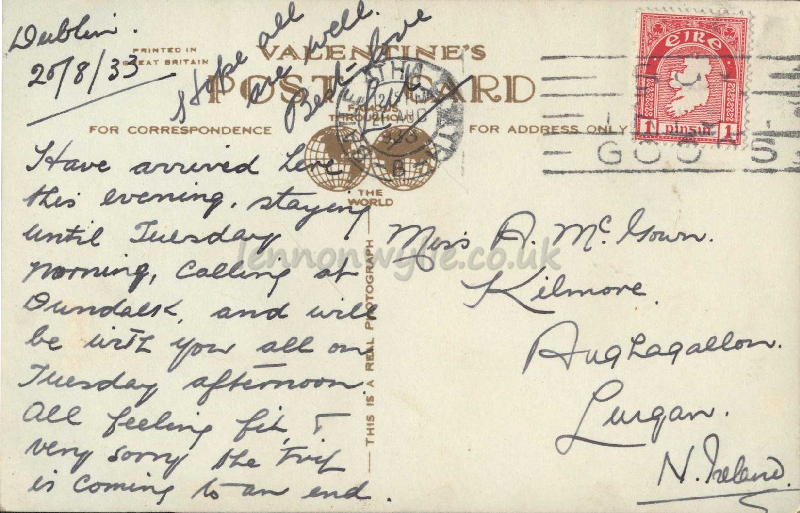 Dublin.
20/8/33
Hope all
are well.
Best love
PRINTED IN
GREAT BRITAIN
VALENTINE'S
POST CARD
FAMOUS
THROUGHOUT
THE
WORLD
FOR CORRESPONDENCE
FOR ADDRESS ONLY
EIRE
1 pinsin 1
Have arrived here
this evening, staying
until Tuesday
morning, calling at
Dundalk, and will
be with you all on
Tuesday afternoon
All feeling fit, &
very sorry the trip
is coming to an end.
THIS IS A REAL PHOTOGRAPH
Miss A. McGown.
Kilmore.
Aughagallon.
Lurgan.
N. Ireland.
lennonwylie.co.uk